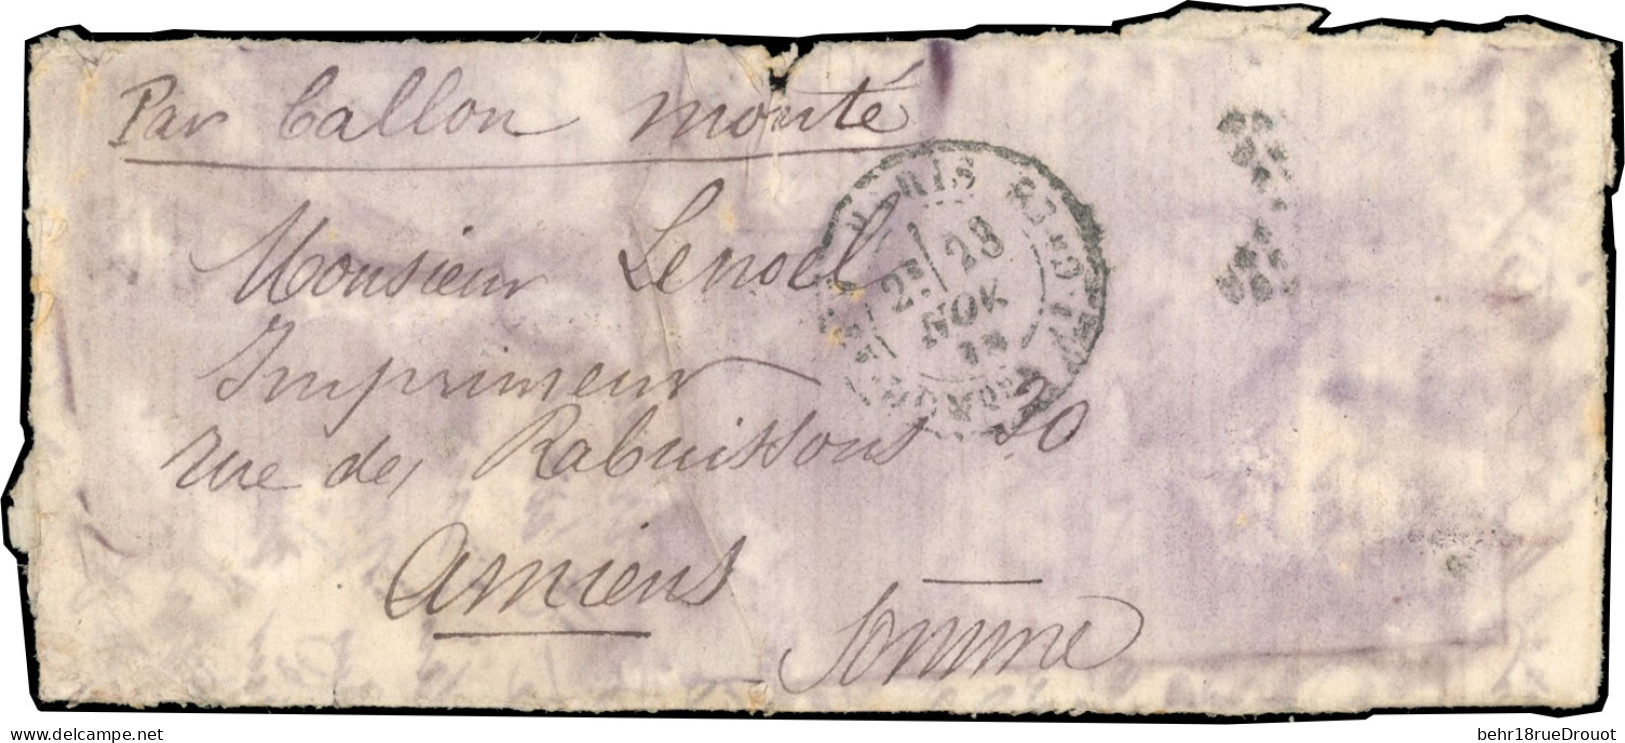 Par ballon monté
Monsieur Lenoel
Imprimeur
rue des Rabuissons 10
Amiens
Somme
PARIS
2E 28
NOV.
www.delcampe.net
behr18rueDrouot